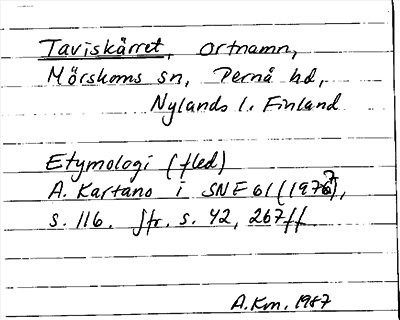 Taviskärret, ortnamn,
Mörskoms sn, Pernå hd,
Nylands l. Finland
Etymologi (fled)
A. Kartano i SNE 61 (1976?),
s. 116. Jfr. s. 42, 267ff.
A.Km. 1987